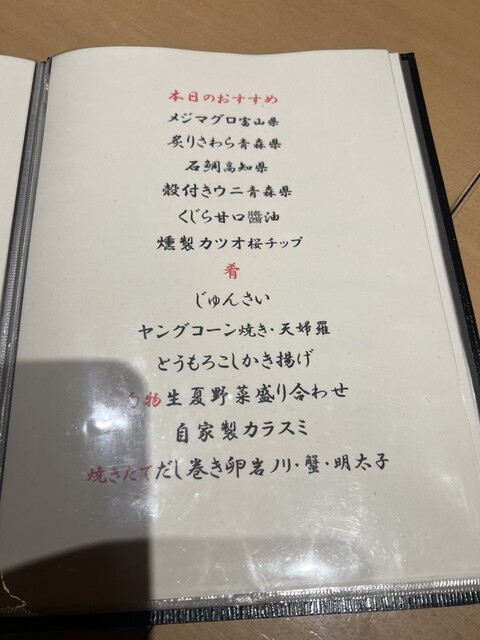 本日のおすすめ
メジマグロ富山県
炙りさわら青森県
石鯛高知県
殻付きウニ青森県
くじら甘口醬油
燻製カツオ桜チップ
肴
じゅんさい
ヤングコーン焼き・天婦羅
とうもろこしかき揚げ
物生夏野菜盛り合わせ
自家製カラスミ
焼きたてだし巻き卵岩ノリ・蟹・明太子